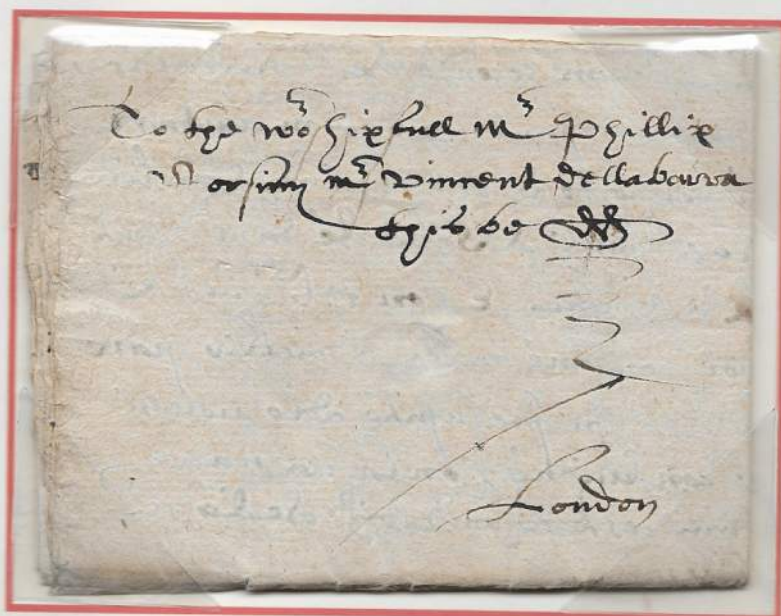 To the wor shipfull mr Phillip
Corsini mr vincent dellabarra
this be dd
London